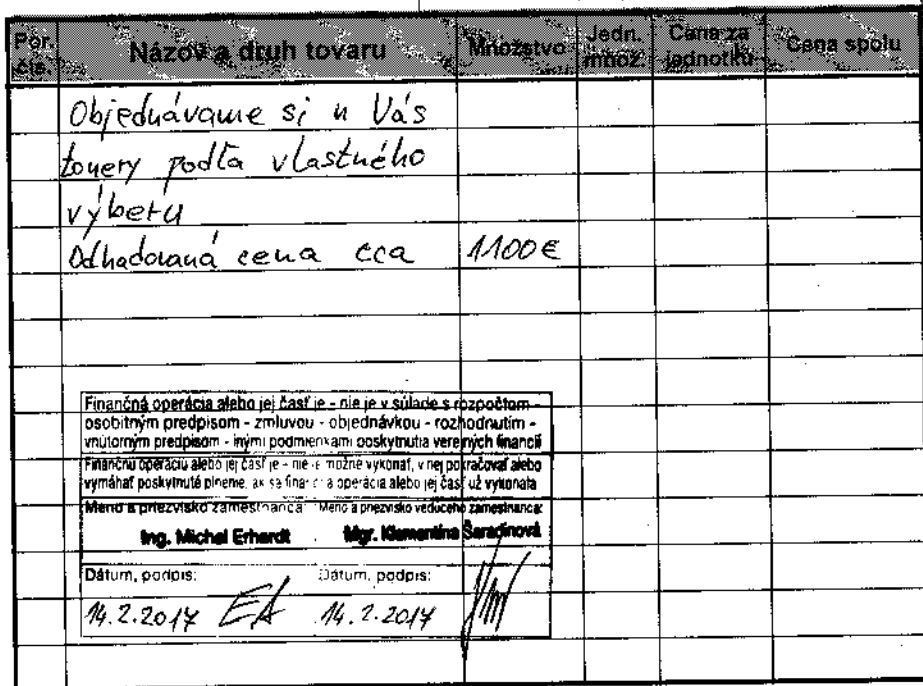 Por. čís. Názov a druh tovaru Množstvo Jedn. množ. Cena za jednotku Cena spolu
Objednávame si u Vás
tonery podľa vlastného
výberu
Odhadovaná cena cca 1100€
Finančná operácia alebo jej časť je - nie je v súlade s rozpočtom -
osobitným predpisom - zmluvou - objednávkou - rozhodnutím -
vnútorným predpisom - inými podmienkami poskytnutia verejných financií
Finančnú operáciu alebo jej časť je - nie je možné vykonať, v nej pokračovať alebo
vymáhať poskytnuté plnenie, ak sa finančná operácia alebo jej časť už vykonala
Meno a priezvisko zamestnanca: Meno a priezvisko vedúceho zamestnanca:
Ing. Michal Erhardt Mgr. Klementína Šaradínová
Dátum, podpis: Dátum, podpis:
14.2.2017 14.2.2017